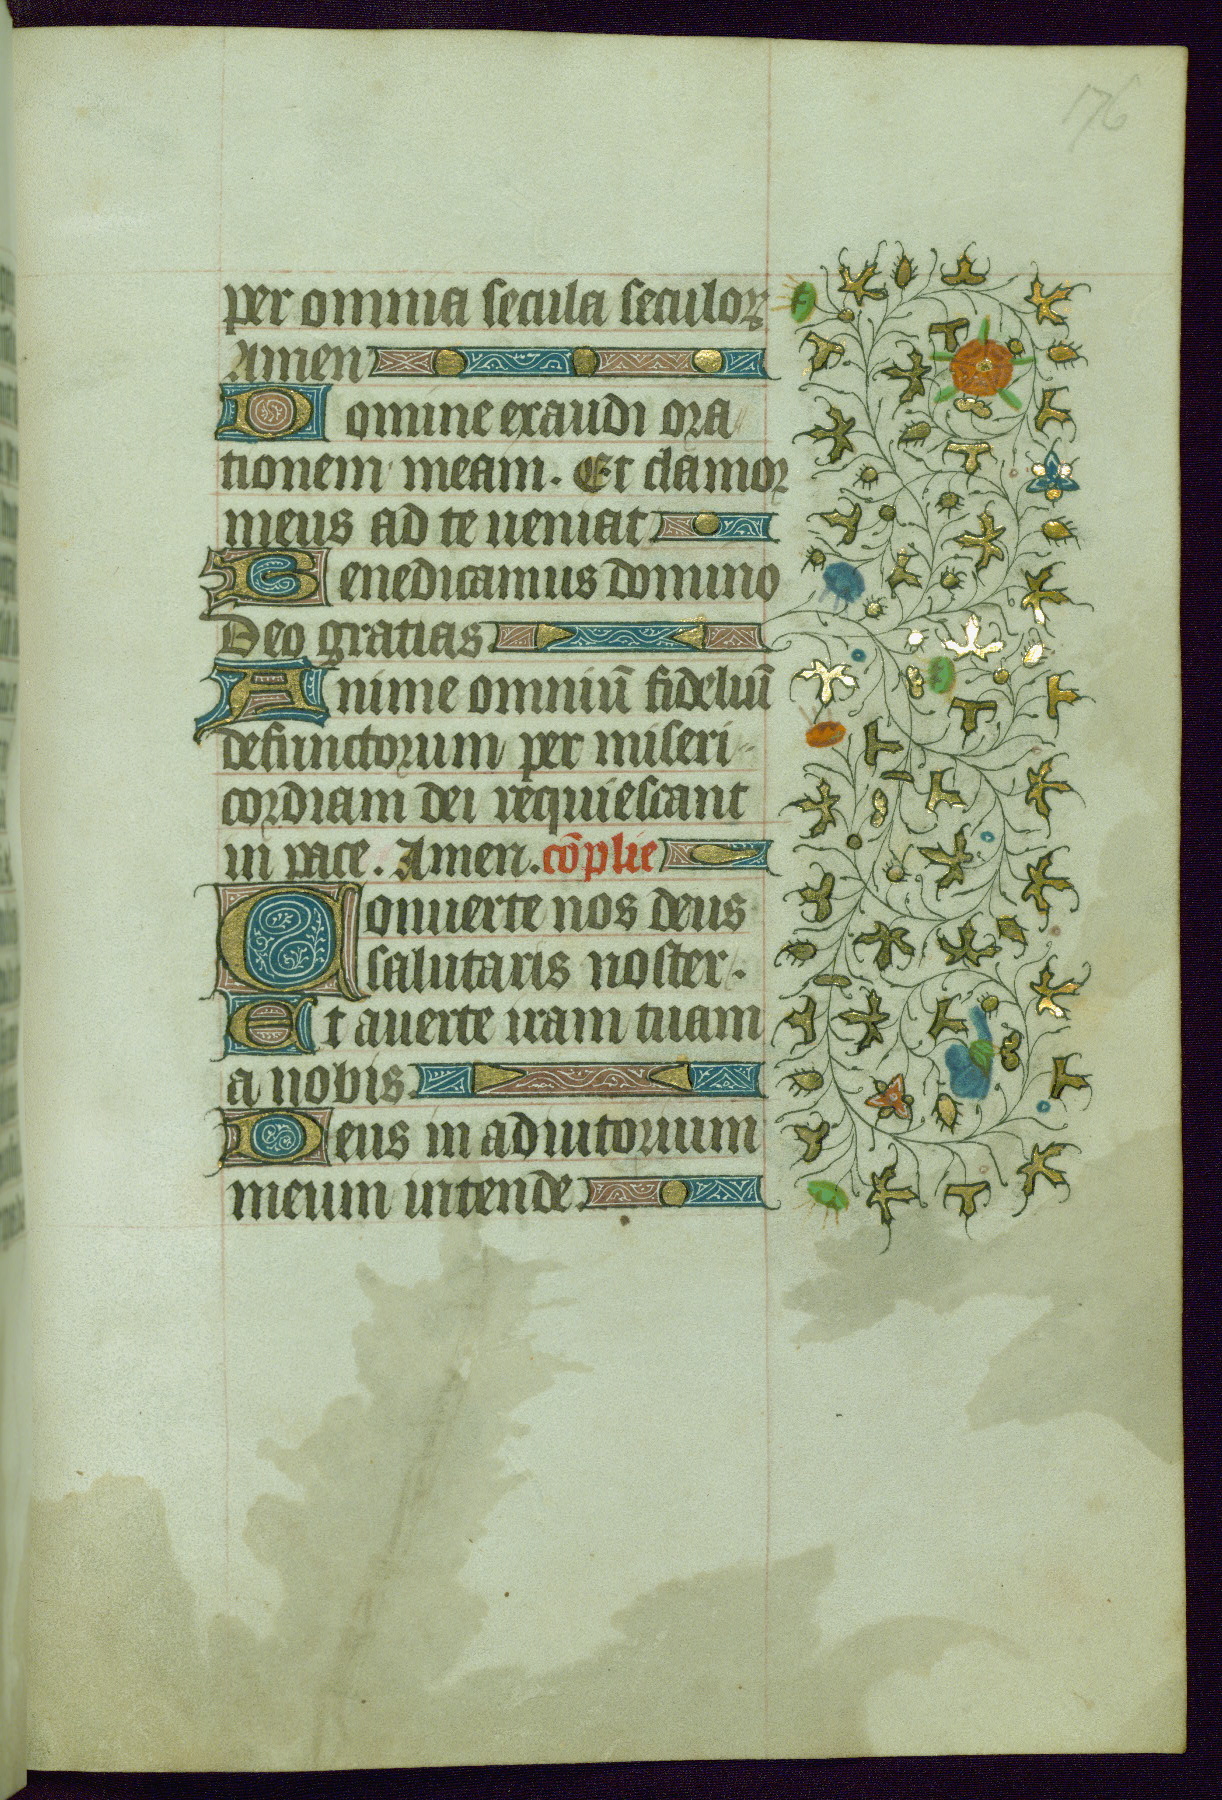 176
per omnia secula seculoꝝ
Amen
Domine exaudi ora
tionem meam. Et clamor
meus ad te ueniat
Benedicamus domino
Deo gratias.
Anime omniū fideliū
defunctorum per miseri
cordiam dei requiescant
in pace. Amen. cōplie
Conuerte nos deus
salutaris noster.
Et auerte iram tuam
a nobis.
Deus in adiutorium
meum intende.